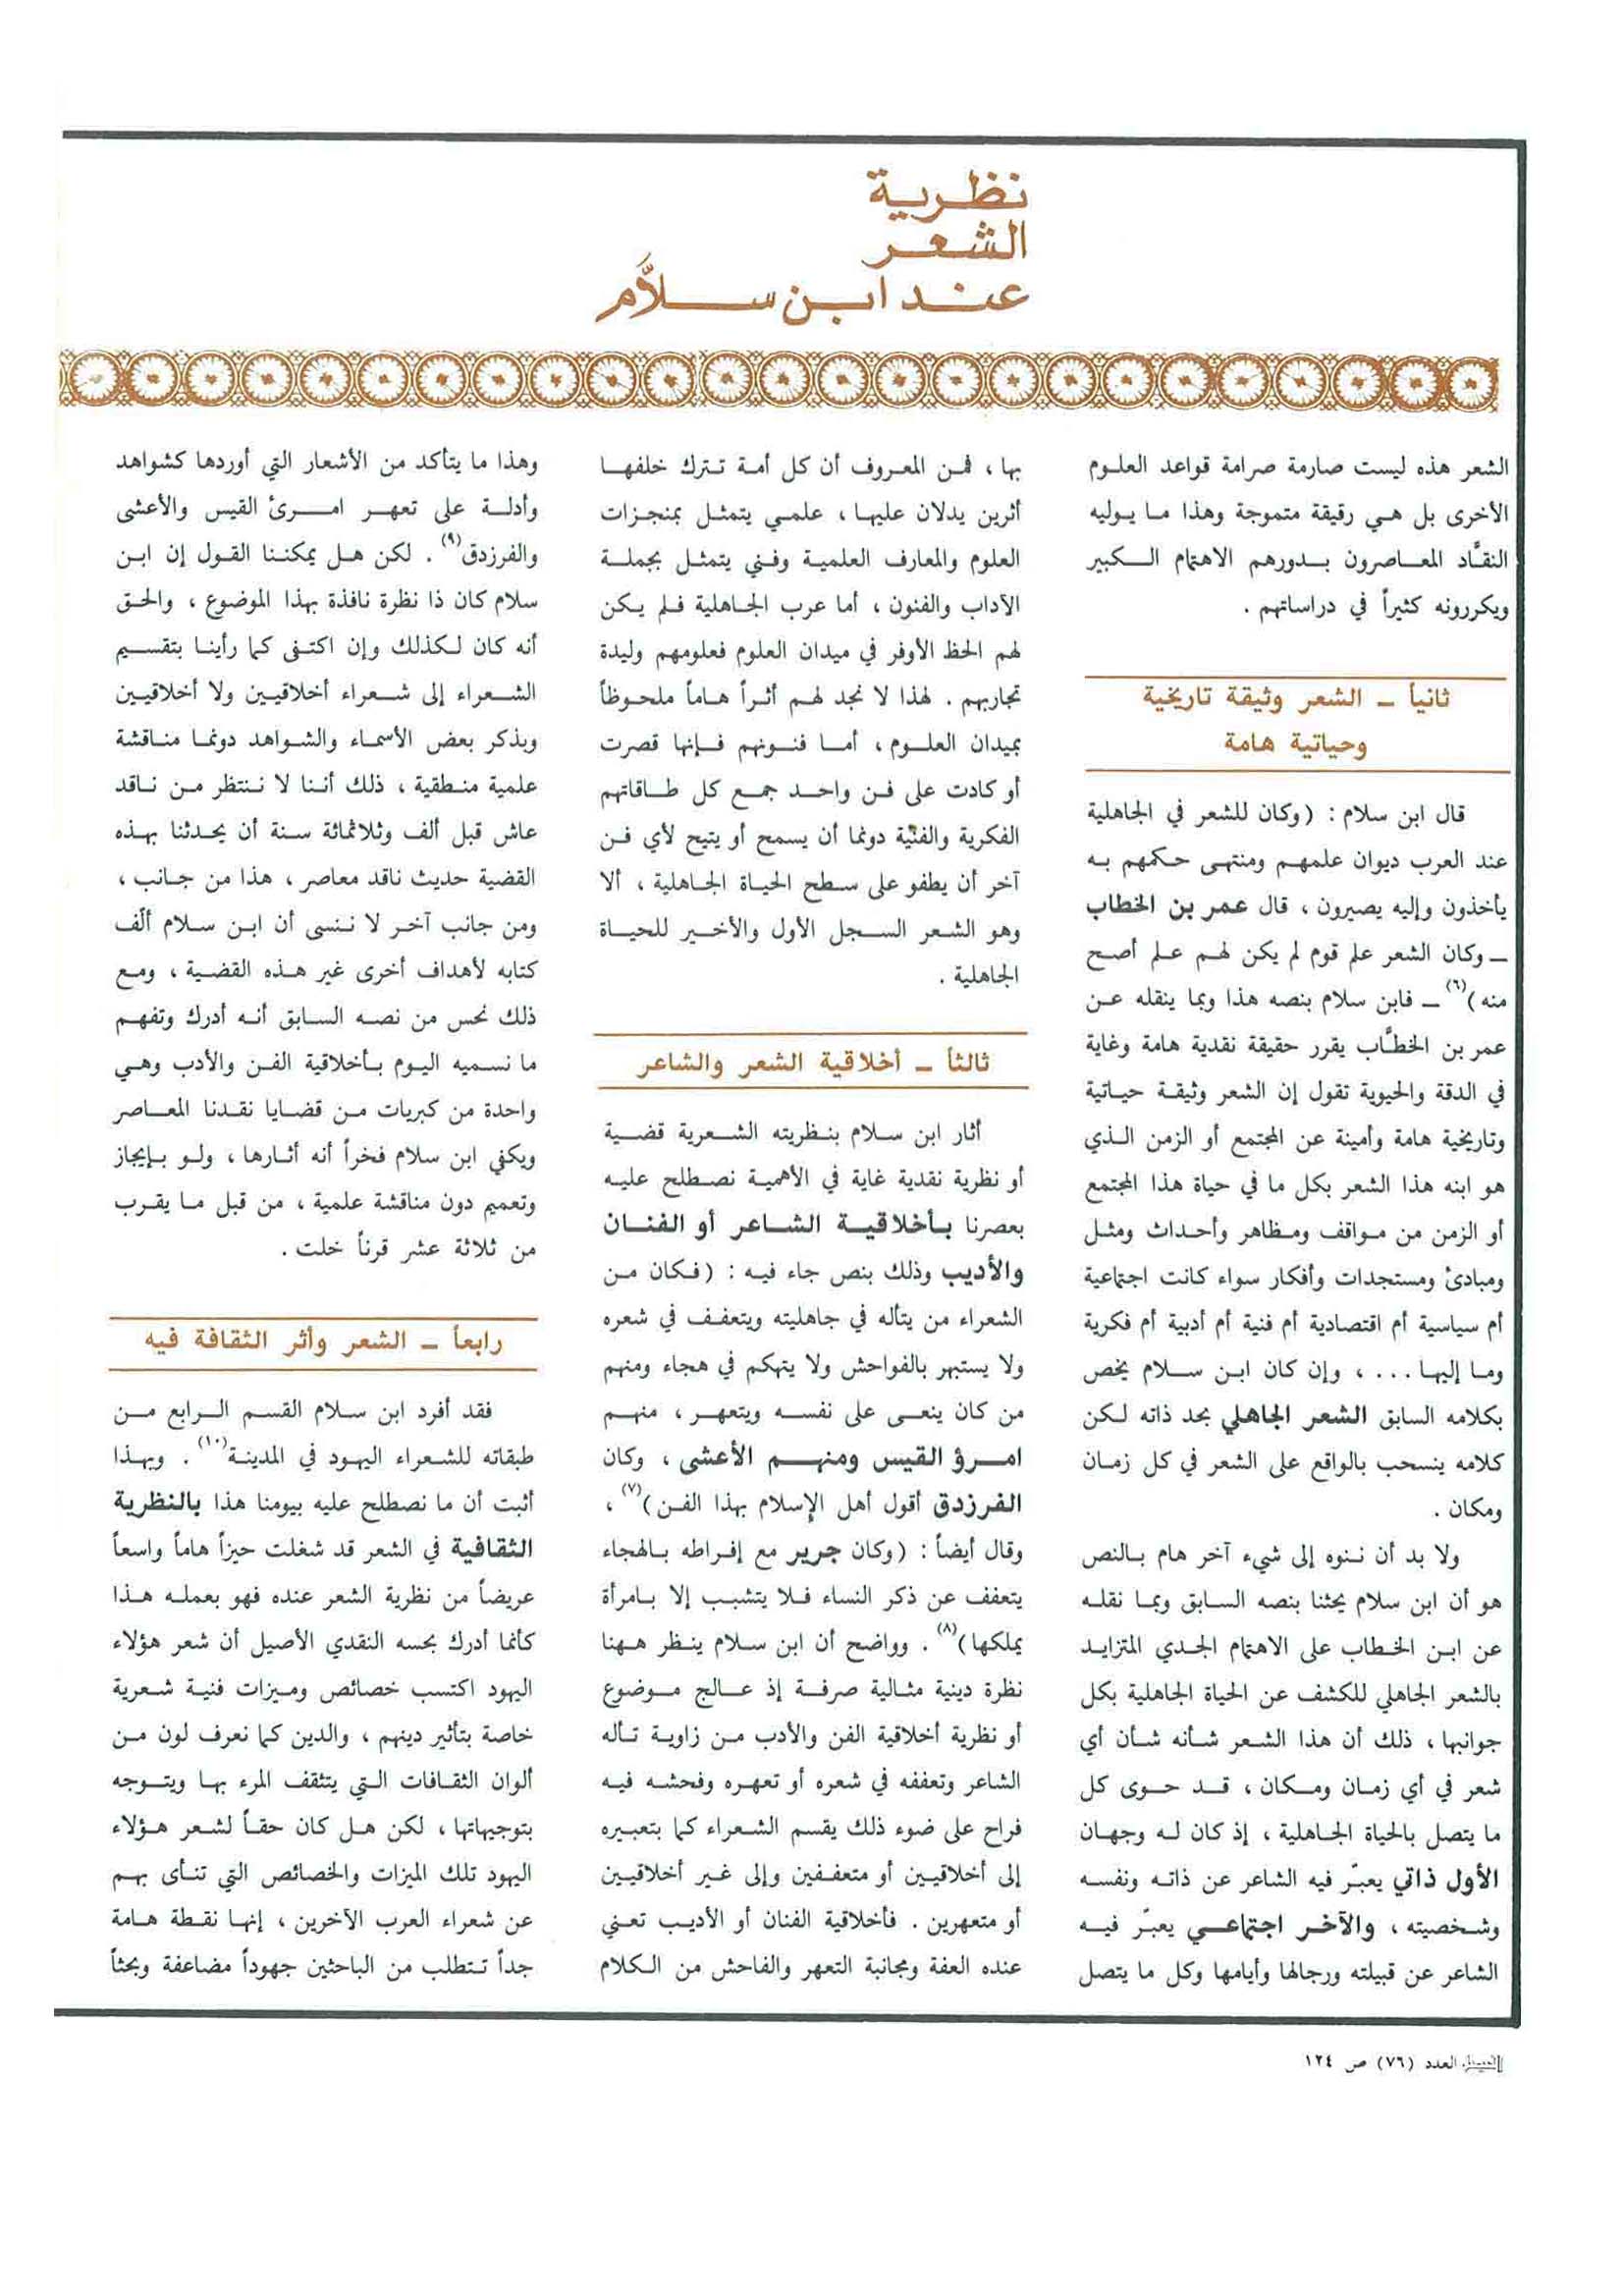 نظرية
الشعر
عند ابن سلاَّم
الشعر هذه ليست صارمة صرامة قواعد العلوم
الأخرى بل هي رقيقة متموجة وهذا ما يوليه
النقَّاد المعاصرون بدورهم الاهتمام الكبير
ويكررونه كثيراً في دراساتهم .
ثانياً – الشعر وثيقة تاريخية
وحياتية هامة
قال ابن سلام : (وكان للشعر في الجاهلية
عند العرب ديوان علمهم ومنتهى حكمهم به
يأخذون وإليه يصيرون ، قال عمر بن الخطاب
– وكان الشعر علم قوم لم يكن لهم علم أصح
منه)(٦) – فابن سلام بنصه هذا وبما ينقله عن
عمر بن الخطَّاب يقرر حقيقة نقدية هامة وغاية
في الدقة والحيوية تقول إن الشعر وثيقة حياتية
وتاريخية هامة وأمينة عن المجتمع أو الزمن الذي
هو ابنه هذا الشعر بكل ما في حياة هذا المجتمع
أو الزمن من مواقف ومظاهر وأحداث ومثل
ومبادئ ومستجدات وأفكار سواء كانت اجتماعية
أم سياسية أم اقتصادية أم فنية أم أدبية أم فكرية
وما إليها ... ، وإن كان ابن سلام يخص
بكلامه السابق الشعر الجاهلي بحد ذاته لكن
كلامه ينسحب بالواقع على الشعر في كل زمان
ومكان .
ولا بد أن ننوه إلى شيء آخر هام بالنص
هو أن ابن سلام يحثنا بنصه السابق وبما نقله
عن ابن الخطاب على الاهتمام الجدي المتزايد
بالشعر الجاهلي للكشف عن الحياة الجاهلية بكل
جوانبها ، ذلك أن هذا الشعر شأنه شأن أي
شعر في أي زمان ومكان ، قد حوى كل
ما يتصل بالحياة الجاهلية ، إذ كان له وجهان
الأول ذاتي يعبّر فيه الشاعر عن ذاته ونفسه
وشخصيته ، والآخر اجتماعي يعبّر فيه
الشاعر عن قبيلته ورجالها وأيامها وكل ما يتصل
بها ، فمن المعروف أن كل أمة تترك خلفها
أثرين يدلان عليها ، علمي يتمثل بمنجزات
العلوم والمعارف العلمية وفني يتمثل بجملة
الآداب والفنون ، أما عرب الجاهلية فلم يكن
لهم الحظ الأوفر في ميدان العلوم فعلومهم وليدة
تجاربهم . لهذا لا نجد لهم أثراً هاماً ملحوظاً
بميدان العلوم ، أما فنونهم فإنها قصرت
أو كادت على فن واحد جمع كل طاقاتهم
الفكرية والفنيّة دونما أن يسمح أو يتيح لأي فن
آخر أن يطفو على سطح الحياة الجاهلية ، ألا
وهو الشعر السجل الأول والأخير للحياة
الجاهلية .
ثالثاً – أخلاقية الشعر والشاعر
أثار ابن سلام بنظريته الشعرية قضية
أو نظرية نقدية غاية في الأهمية نصطلح عليه
بعصرنا بأخلاقية الشاعر أو الفنان
والأديب وذلك بنص جاء فيه : (فكان من
الشعراء من يتأله في جاهليته ويتعفف في شعره
ولا يستبهر بالفواحش ولا يتهكم في هجاء ومنهم
من كان ينعى على نفسه ويتعهر ، منهم
امرؤ القيس ومنهم الأعشى ، وكان
الفرزدق أقول أهل الإسلام بهذا الفن)(٧) ،
وقال أيضاً : (وكان جرير مع إفراطه بالهجاء
يتعفف عن ذكر النساء فلا يتشبب إلا بامرأة
يملكها)(٨) . وواضح أن ابن سلام ينظر ههنا
نظرة دينية مثالية صرفة إذ عالج موضوع
أو نظرية أخلاقية الفن والأدب من زاوية تأله
الشاعر وتعففه في شعره أو تعهره وفحشه فيه
فراح على ضوء ذلك يقسم الشعراء كما بتعبيره
إلى أخلاقيين أو متعففين وإلى غير أخلاقيين
أو متعهرين . فأخلاقية الفنان أو الأديب تعني
عنده العفة ومجانبة التعهر والفاحش من الكلام
وهذا ما يتأكد من الأشعار التي أوردها كشواهد
وأدلة على تعهر امرئ القيس والأعشى
والفرزدق(٩) . لكن هل يمكننا القول إن ابن
سلام كان ذا نظرة نافذة بهذا الموضوع ، والحق
أنه كان لكذلك وإن اكتفى كما رأينا بتقسيم
الشعراء إلى شعراء أخلاقيين ولا أخلاقيين
وبذكر بعض الأسماء والشواهد دونما مناقشة
علمية منطقية ، ذلك أننا لا ننتظر من ناقد
عاش قبل ألف وثلاثمائة سنة أن يحدثنا بهذه
القضية حديث ناقد معاصر ، هذا من جانب ،
ومن جانب آخر لا ننسى أن ابن سلام ألّف
كتابه لأهداف أخرى غير هذه القضية ، ومع
ذلك نحس من نصه السابق أنه أدرك وتفهم
ما نسميه اليوم بأخلاقية الفن والأدب وهي
واحدة من كبريات من قضايا نقدنا المعاصر
ويكفي ابن سلام فخراً أنه أثارها ، ولو بإيجاز
وتعميم دون مناقشة علمية ، من قبل ما يقرب
من ثلاثة عشر قرناً خلت .
رابعاً – الشعر وأثر الثقافة فيه
فقد أفرد ابن سلام القسم الرابع من
طبقاته للشعراء اليهود في المدينة(١٠) . وبهذا
أثبت أن ما نصطلح عليه بيومنا هذا بالنظرية
الثقافية في الشعر قد شغلت حيزاً هاماً واسعاً
عريضاً من نظرية الشعر عنده فهو بعمله هذا
كأنما أدرك بحسه النقدي الأصيل أن شعر هؤلاء
اليهود اكتسب خصائص وميزات فنية شعرية
خاصة بتأثير دينهم ، والدين كما نعرف لون من
ألوان الثقافات التي يتثقف المرء بها ويتوجه
بتوجيهاتها ، لكن هل كان حقاً لشعر هؤلاء
اليهود تلك الميزات والخصائص التي تنأى بهم
عن شعراء العرب الآخرين ، إنها نقطة هامة
جداً تتطلب من الباحثين جهوداً مضاعفة وبحثاً
الفيصل العدد (٧٦) ص ١٢٤